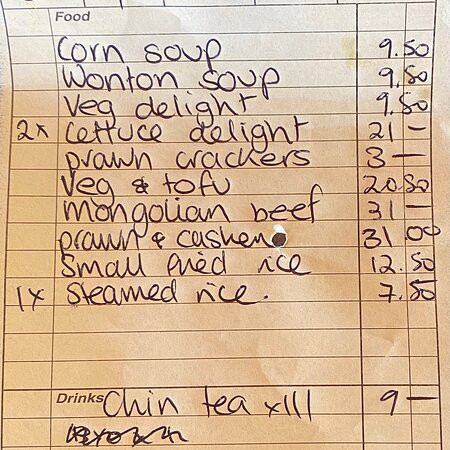 Food
Corn soup 9.50
Wonton soup 9.50
Veg delight 9.50
2x Lettuce delight 21 —
prawn crackers 3 —
Veg & tofu 20.50
Mongolian beef 31 —
prawn & cashew 31.00
Small fried rice 12.50
1x Steamed rice. 7.50
Drinks Chin tea x111 9 —